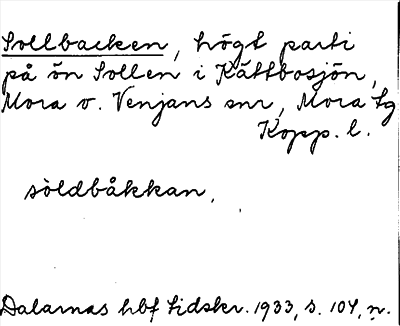 Sollbacken, högt parti
på ön Sollen i Kättbosjön,
Mora o. Venjans snr, Mora tg
Kopp. l.
sòldbåkkan.
Dalarnas hbf tidskr. 1933, s. 104, n.